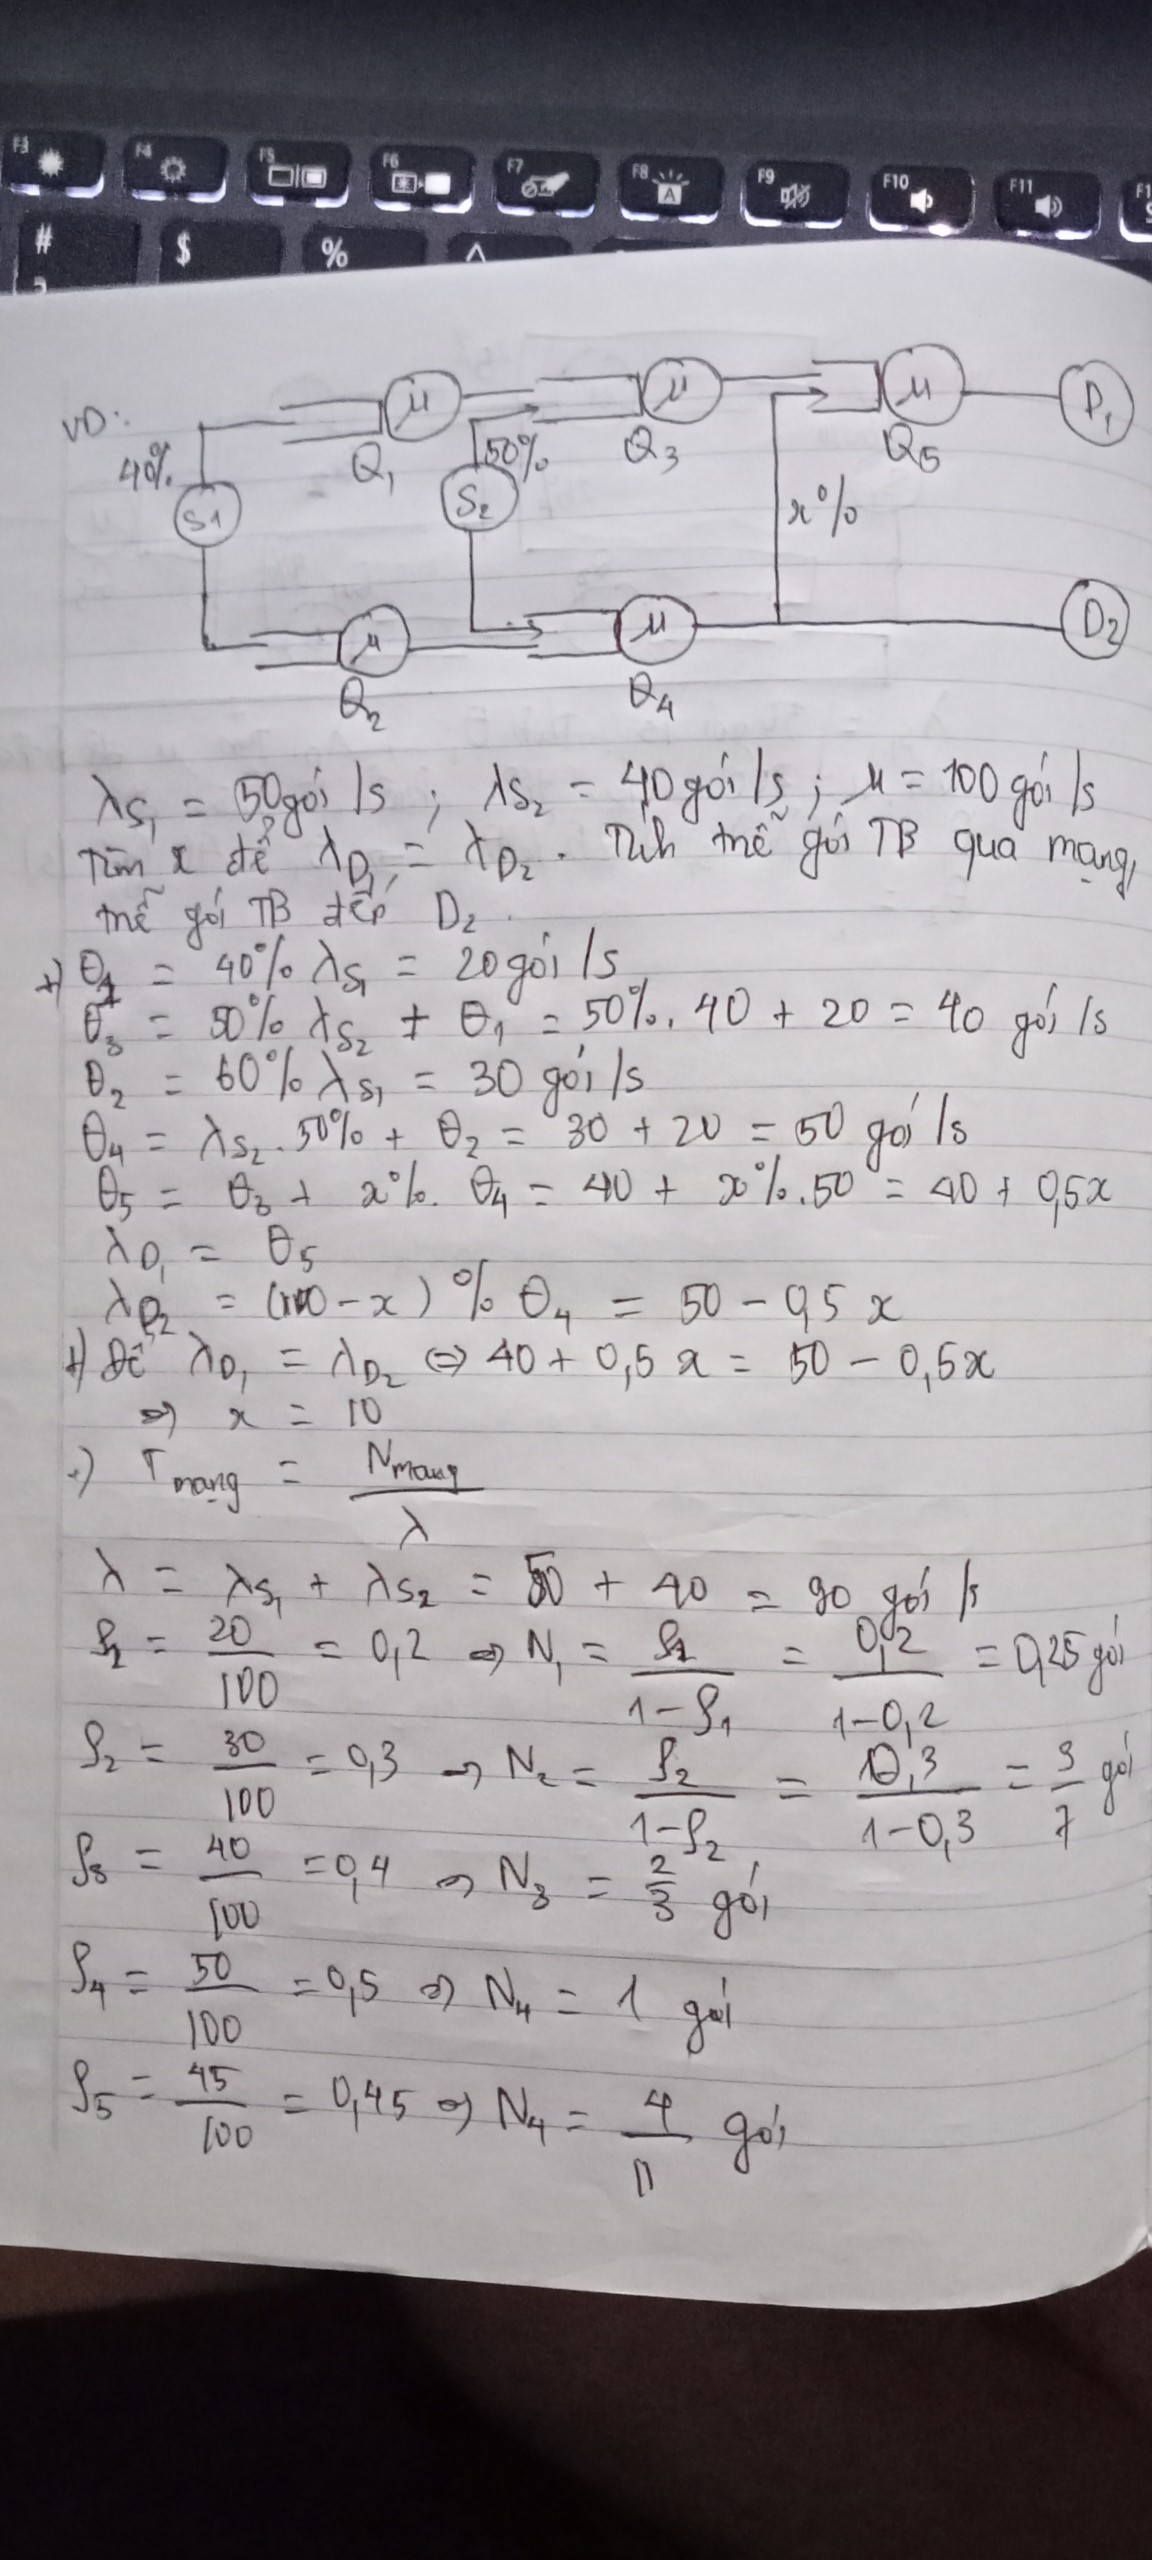 F3 F4 F5 F6 F7 F8 F9 F10 F11
# $ % ^
A
VD:
μ μ μ D₁
40% Q₁ 50% Q₃ Q₅
S1 S₂ x%
μ μ D₂
Q₂ Q₄
λS₁ = 50 gói/s ; λS₂ = 40 gói/s ; μ = 100 gói/s
Tìm x để λD₁ = λD₂. Tính trễ gói TB qua mạng,
trễ gói TB đến D₂.
+) θ₁ = 40% λS₁ = 20 gói/s
θ₃ = 50% λS₂ + θ₁ = 50%. 40 + 20 = 40 gói/s
θ₂ = 60% λS₁ = 30 gói/s
θ₄ = λS₂.50% + θ₂ = 30 + 20 = 50 gói/s
θ₅ = θ₃ + x%. θ₄ = 40 + x%.50 = 40 + 0,5x
λD₁ = θ₅
λD₂ = (100 - x)% θ₄ = 50 - 0,5x
+) Để λD₁ = λD₂ ⇔ 40 + 0,5x = 50 - 0,5x
⇒ x = 10
+) Tmạng = Nmạng / λ
λ = λS₁ + λS₂ = 50 + 40 = 90 gói/s
ρ₁ = 20/100 = 0,2 ⇒ N₁ = ρ₁/(1-ρ₁) = 0,2/(1-0,2) = 0,25 gói
ρ₂ = 30/100 = 0,3 ⇒ N₂ = ρ₂/(1-ρ₂) = 0,3/(1-0,3) = 3/7 gói
ρ₃ = 40/100 = 0,4 ⇒ N₃ = 2/3 gói
ρ₄ = 50/100 = 0,5 ⇒ N₄ = 1 gói
ρ₅ = 45/100 = 0,45 ⇒ N₄ = 4/11 gói